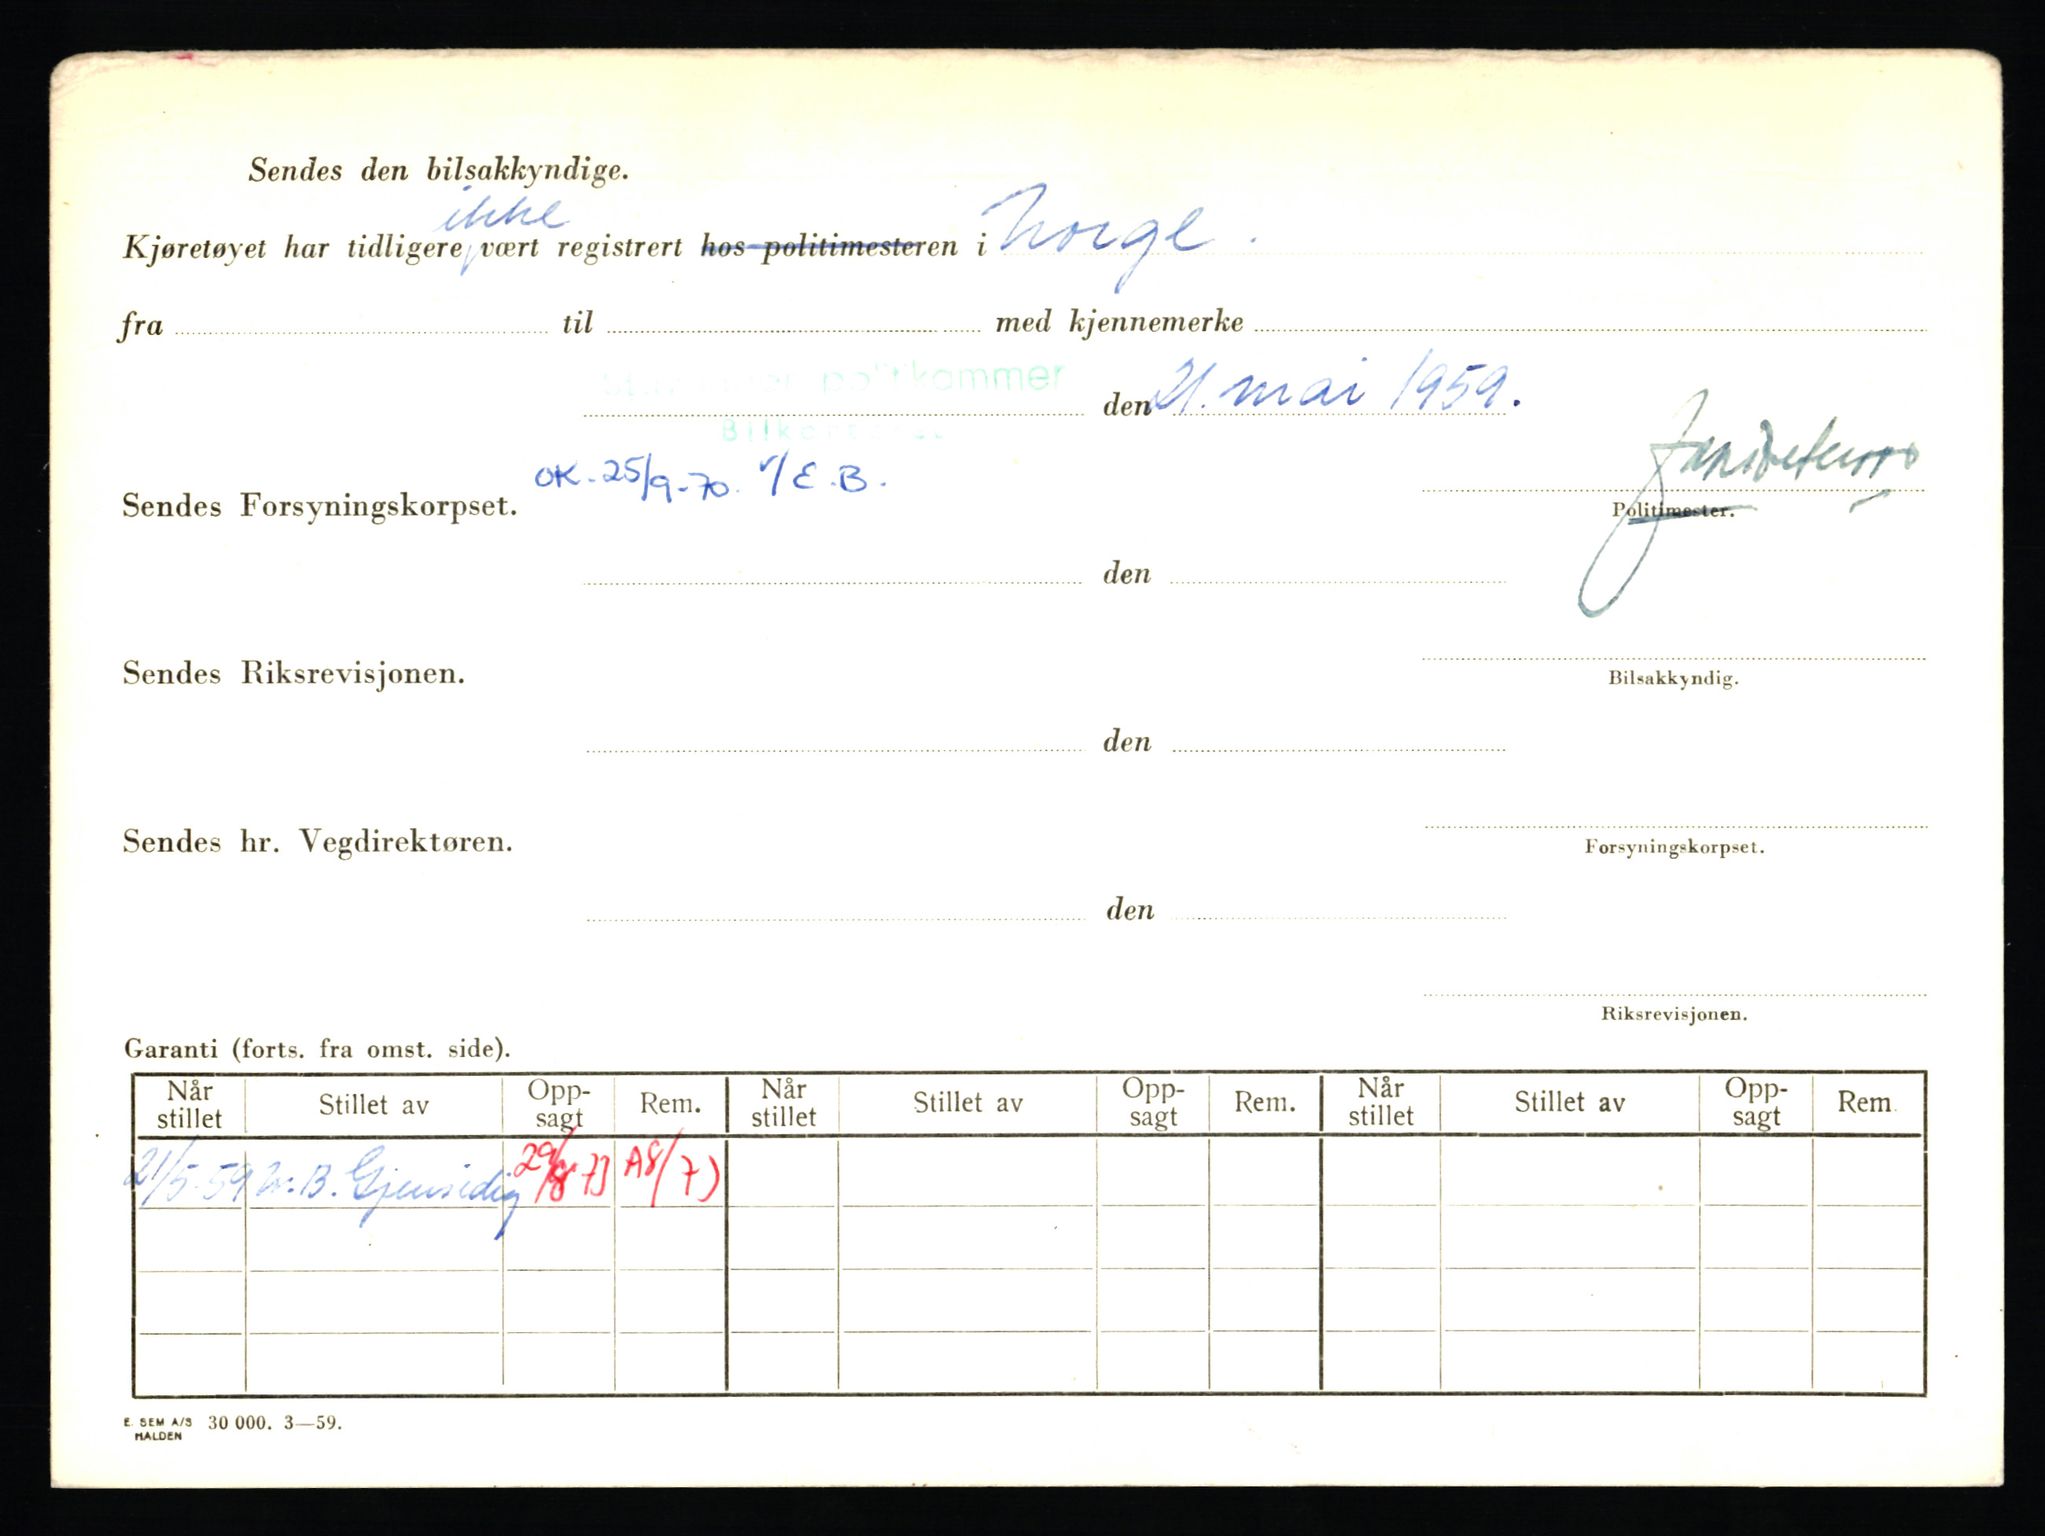 Sendes den bilsakkyndige.
ikke
Kjøretøyet har tidligere vært registrert hos politimesteren i Norge.
fra til med kjennemerke
politikammer
den 21. mai 1959.
OK. 25/9-70. v/E.B.
Sendes Forsyningskorpset.
Politimester.
den
Sendes Riksrevisjonen.
Bilsakkyndig.
den
Sendes hr. Vegdirektøren.
Forsyningskorpset.
den
Riksrevisjonen.
Garanti (forts. fra omst. side).
Når stillet Stillet av Opp-sagt Rem. Når stillet Stillet av Opp-sagt Rem. Når stillet Stillet av Opp-sagt Rem.
21/5-59 Gjensidig 29/8 73 A8/73
E. SEM A/S 30 000. 3—59.
HALDEN